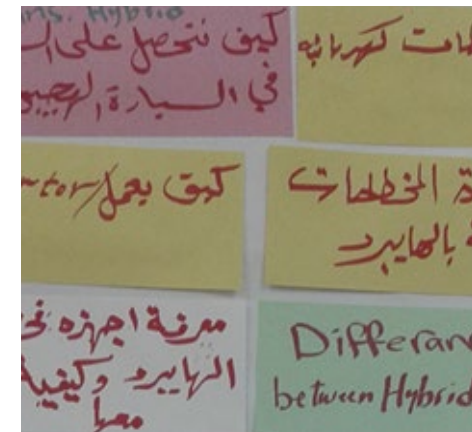 Hybrid
كيف نتحصل على
في السيارة الهجين
كهربائيه
كيف يعمل
المخططات
بالهايبرد
معرفة اجهزه
الهايبرد وكيفية
معها
Differan
between Hybrid